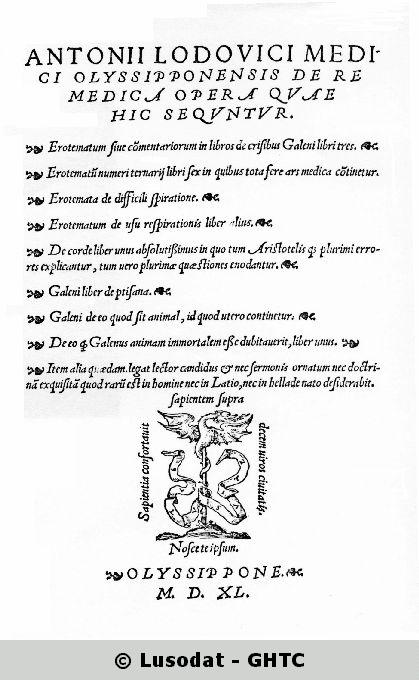 ANTONII LODOVICI MEDI-
CI OLYSSIPPONENSIS DE RE
MEDICA OPERA QVAE
HIC SEQVNTVR.
Erotematum siue cõmentariorum in libros de crisibus Galeni libri tres.
Erotematũ numeri ternarij libri sex in quibus tota fere ars medica cõtinetur.
Erotemata de difficili spiratione.
Erotematum de usu respirationis liber alius.
De corde liber unus absolutissimus in quo tum Aristotelis q̃ plurimi erro-
res explicantur, tum uero plurimæ quæstiones enodantur.
Galeni liber de ptisana.
Galeni de eo quod sit animal, id quod utero continetur.
De eo q̃ Galenus animam immortalem esse dubitauerit, liber unus.
Item alia quædam. legat lector candidus & nec sermonis ornatum nec doctri-
nã exquisitã quod rarũ est in homine nec in Latio, nec in hellade nato desiderabit.
sapientem supra
Sapientia confortauit
decem uiros ciuitatis.
Nosce te ipsum.
OLYSSIPPONE.
M. D. XL.
© Lusodat - GHTC